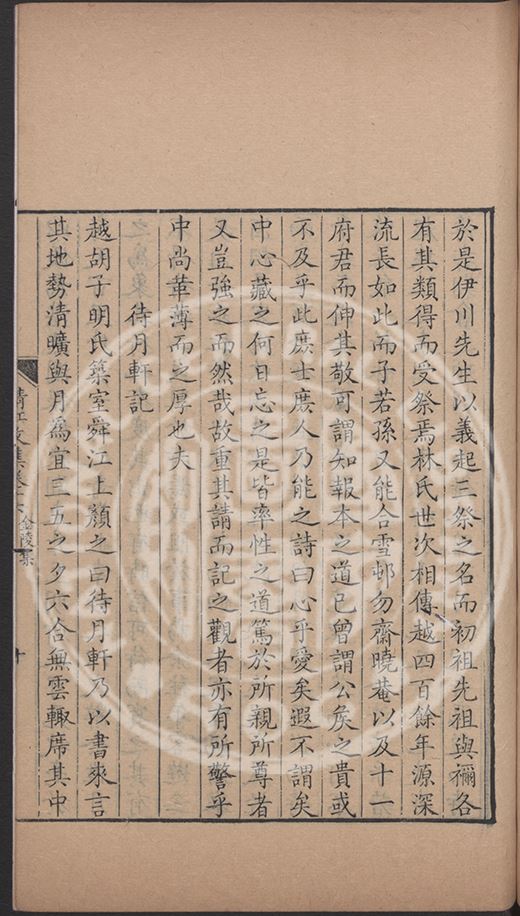 於是伊川先生以義起三祭之名而初祖先祖與禰各
有其類得而受祭焉林氏世次相傳越四百餘年源深
流長如此而子若孫又能合雪邨勿齋曉菴以及十一
府君而伸其敬可謂知報本之道已曾謂公矦之貴或
不及乎此庶士庶人乃能之詩曰心乎愛矣遐不謂矣
中心藏之何日忘之是皆率性之道篤於所親所尊者
又豈強之而然哉故重其請而記之觀者亦有所警乎
中尚華薄而之厚也夫
待月軒記
越胡子明氏築室舜江上顏之曰待月軒乃以書來言
其地勢清曠與月為宜三五之夕六合無雲輙席其中
清江文集卷十六 金陵集
十